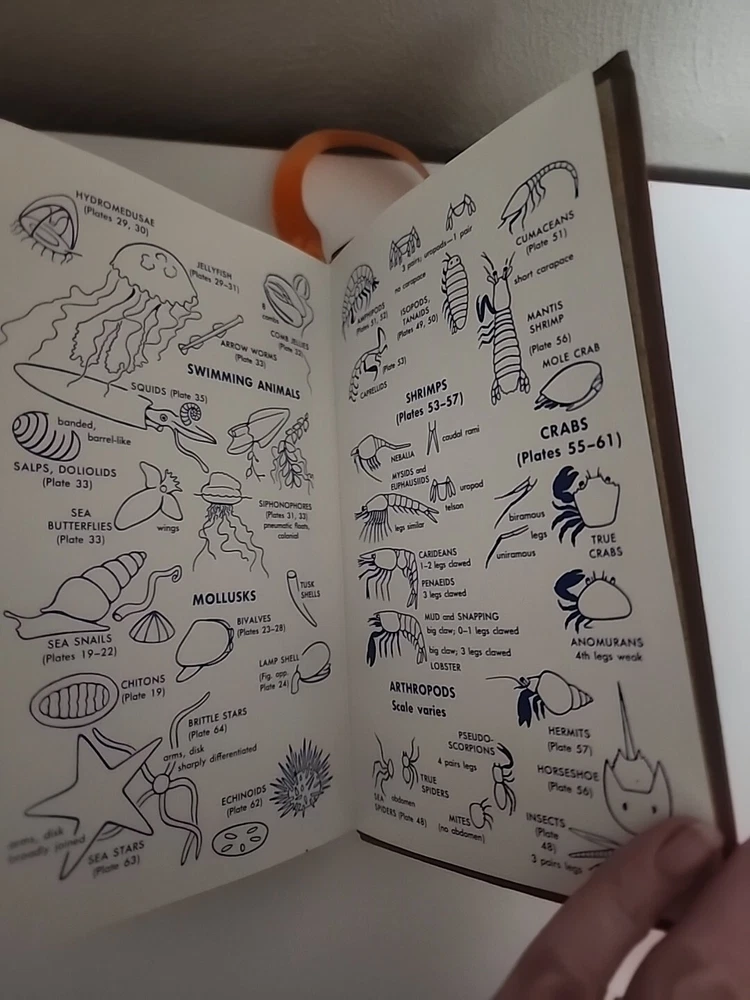 HYDROMEDUSAE
(Plates 29, 30)
JELLYFISH
(Plates 29–31)
8
combs
COMB JELLIES
(Plate 32)
ARROW WORMS
(Plate 33)
SWIMMING ANIMALS
SQUIDS (Plate 35)
banded,
barrel-like
SALPS, DOLIOLIDS
(Plate 33)
SEA
BUTTERFLIES
(Plate 33)
wings
SIPHONOPHORES
(Plates 31, 33)
pneumatic floats,
colonial
MOLLUSKS
TUSK
SHELLS
SEA SNAILS
(Plates 19–22)
BIVALVES
(Plates 23–28)
LAMP SHELL
(Fig. opp.
Plate 24)
CHITONS
(Plate 19)
BRITTLE STARS
(Plate 64)
arms, disk
sharply differentiated
ECHINOIDS
(Plate 62)
arms, disk
broadly joined
SEA STARS
(Plate 63)
3 pairs; uropods—1 pair
no carapace
AMPHIPODS
(Plates 51, 52)
ISOPODS,
TANAIDS
(Plates 49, 50)
CUMACEANS
(Plate 51)
short carapace
MANTIS
SHRIMP
(Plate 56)
CAPRELLIDS
(Plate 53)
MOLE CRAB
SHRIMPS
(Plates 53–57)
CRABS
(Plates 55–61)
NEBALIA
caudal rami
MYSIDS and
EUPHAUSIIDS
uropod
telson
legs similar
biramous
legs
uniramous
TRUE
CRABS
CARIDEANS
1–2 legs clawed
PENAEIDS
3 legs clawed
MUD and SNAPPING
big claw; 0–1 legs clawed
big claw; 3 legs clawed
LOBSTER
ANOMURANS
4th legs weak
ARTHROPODS
Scale varies
HERMITS
(Plate 57)
PSEUDO-
SCORPIONS
4 pairs legs
HORSESHOE
(Plate 56)
TRUE
SPIDERS
abdomen
SEA
SPIDERS (Plate 48)
MITES
(no abdomen)
INSECTS
(Plate
48)
3 pairs legs